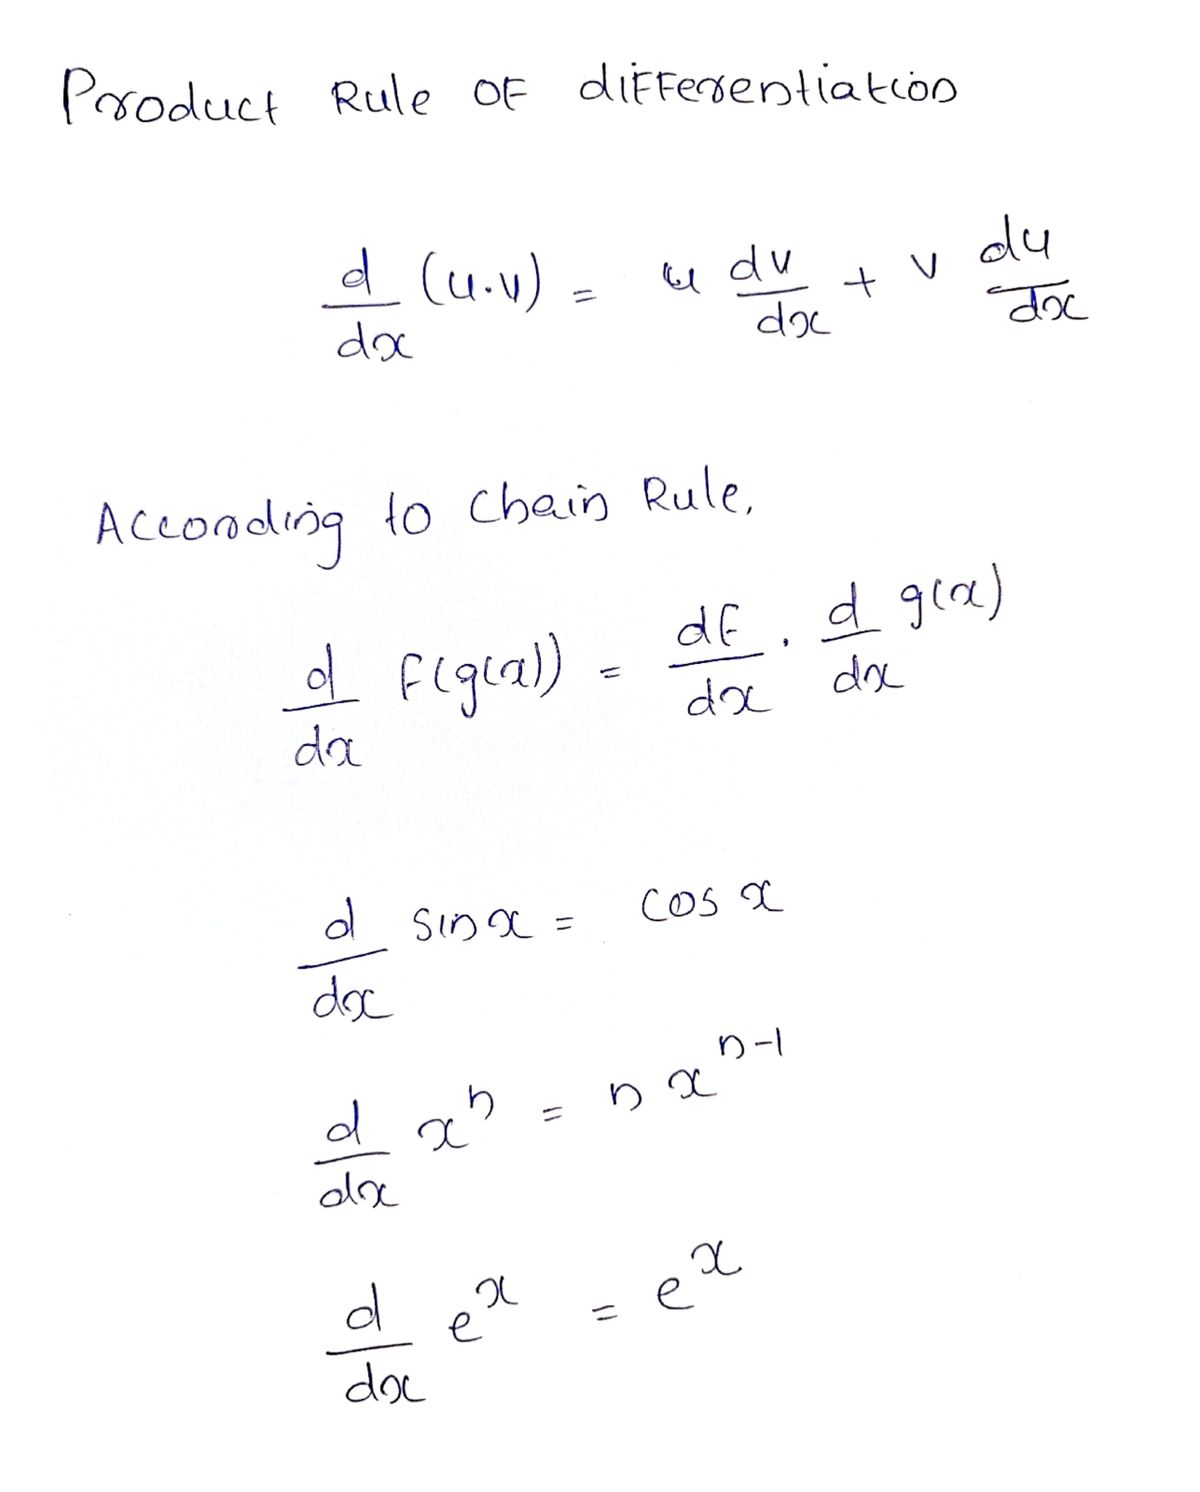 Product Rule OF differentiation
d/dx (u.v) = u dv/dx + v du/dx
According to Chain Rule,
d/dx F(g(x)) = dF/dx . d/dx g(x)
d/dx sin x = cos x
d/dx x^n = n x^(n-1)
d/dx e^x = e^x